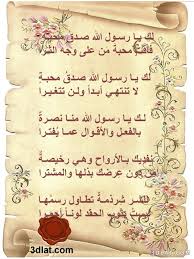 لك يا رسول الله صدق محبة
فاقت محبة من على وجه الثرى
لك يا رسول الله صدق محبة
لا تنتهي أبداً ولن تتغيرا
لك يا رسول الله منا نصرة
بالفعل والأقوال عما يفترا
نفديك بالأرواح وهي رخيصة
من دون عرضك بذلها والمشترى
للشر شرذمة تطاول رسمها
لونا أحمرا
3dlat.com